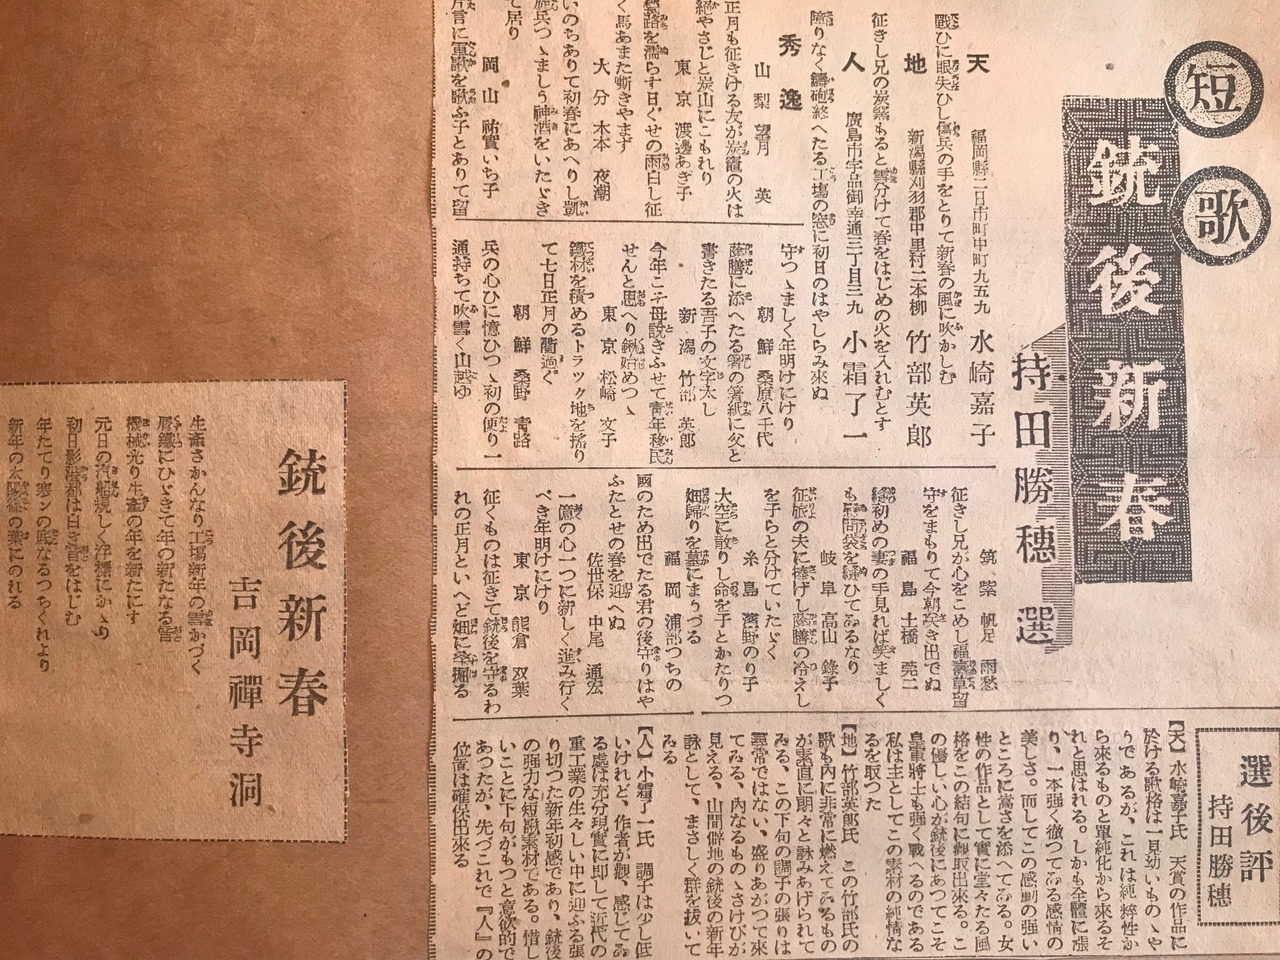 短歌
銃後新春
持田勝穂 選
天 福岡縣二日市町中町九五九 水崎嘉子
戰ひに眼失ひし傷兵の手をとりて新春の風に吹かしむ
地 新潟縣刈羽郡中里村二本柳 竹部英郎
征きし兄の炭竈もると雪分けて春をはじめの火を入れむとす
人 廣島市宇品御幸通三丁目三九 小霜了一
障りなく鑄砲終へたる工場の窓に初日のはやしらみ來ぬ
秀逸
山梨 望月 英
正月も征きける友が炭竈の火は
絶やさじと炭山にこもれり
東京 渡邊あき子
路を濡らす日ぐせの雨白し征
く馬あまた嘶きやまず
大分 木本 夜潮
いのちありて初春にあへりし凱
旋兵つゝましう神酒をいたゞき
て居り
岡山 祐實いち子
片言に軍歌を歌ふ子とありて留
守つゝましく年明けにけり
朝鮮 桑原八千代
蔭膳に添へたる箸の箸紙に父と
書きたる吾子の文字太し
新潟 竹部 英郎
今年こそ母説きふせて靑年移民
せんと思へり鍬始めつゝ
東京 松崎 文子
鐵材を積めるトラック地を搖り
て七日正月の衢過ぐ
朝鮮 桑野 靑路
兵の心ひに憶ひつゝ初の便り一
通持ちて吹雪く山越ゆ
筑紫 帆足 雨愁
征きし兄が心をこめし福壽草留
守をまもりて今朝咲き出でぬ
福島 土橋 莞二
縫初めの妻の手見れば笑ましく
も慰問袋を縫ひてゐるなり
岐阜 高山 錄子
征旅の夫に捧げし蔭膳の冷えし
を子らと分けていたゞく
糸島 濱野のり子
大空に散りし命を子とかたりつ
畑歸りを墓にまゐりづる
福岡 浦部つちの
國のため出でたる君の後守りはや
ふたとせの春を迎へぬ
佐世保 中尾 通宏
一億の心一つに新しく進み行く
べき年明けにけり
東京 熊倉 双葉
征くものは征きて銃後を守るわ
れの正月といへど畑に麥掘る
選後評
持田勝穗
【天】水崎嘉子氏 天賞の作品に
於ける歌格は一見幼いものゝや
うであるが、これは純粹性か
ら來るものと單純化から來るそ
れと思はれる。しかも全體に張
り、一本強く徹つてゐる感情の
美しさ。而してこの感動の強い
ところに嵩さを添へてゐる。女
性の作品として實に堂々たる風
格をこの結句に攝取出來る。こ
の優しい心が銃後にあつてこそ
皇軍將士も強く戰へるのである
私は主としてこの素材の純情な
るを取つた
【地】竹部英郎氏 この竹部氏の
歌も內に非常に燃えてゐるもの
が素直に朗々と詠みあげられて
ゐる、この下句の調子の張りは
尋常ではない、盛りあがつて來
てゐる、內なるものゝさけびが
見える、山間僻地の銃後の新年
詠として、まさしく群を拔いて
ゐる
【人】小霜了一氏 調子は少し低
いけれど、作者が觀、感じてゐ
る處は充分現實に即して近代の
重工業の生々しい中に迎ふる張
り切つた新年初感であり、銃後
の强力な短歌素材である。惜し
いことに下句がもつと意欲的で
あつたが、先づこれで『人』の
位置は確保出來る
銃後新春
吉岡禪寺洞
生産さかんなり工場新年の雪かづく
屑鐵にひゞきて年の新たなる雷
機械光り生産の年を新たにす
元日の汽船規しく浮標にかゝり
初日影港都は白き雪をはじむ
年たてり寒ンの底なるつちくれより
新年の太陽